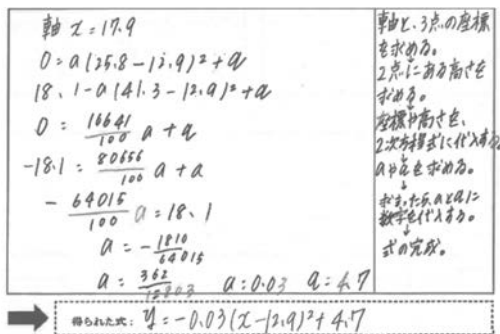 軸 x=17.9
0=a(25.8-12.9)²+q
18.1-a(41.3-12.9)²+q
0= 16641/100 a+q
-18.1= 80656/100 a+a
- 64015/100 a=18.1
a=- 1810/64015
a= 362/12803 a:0.03 q=4.7
軸と、3点の座標
を求める。
2点にある高さを
求める。
↓
座標や高さを、
2次方程式に代入する
aやqを求める。
↓
求まったらaとqに
数字を代入する。
↓
式の完成。
得られた式: y=-0.03(x-12.9)²+4.7